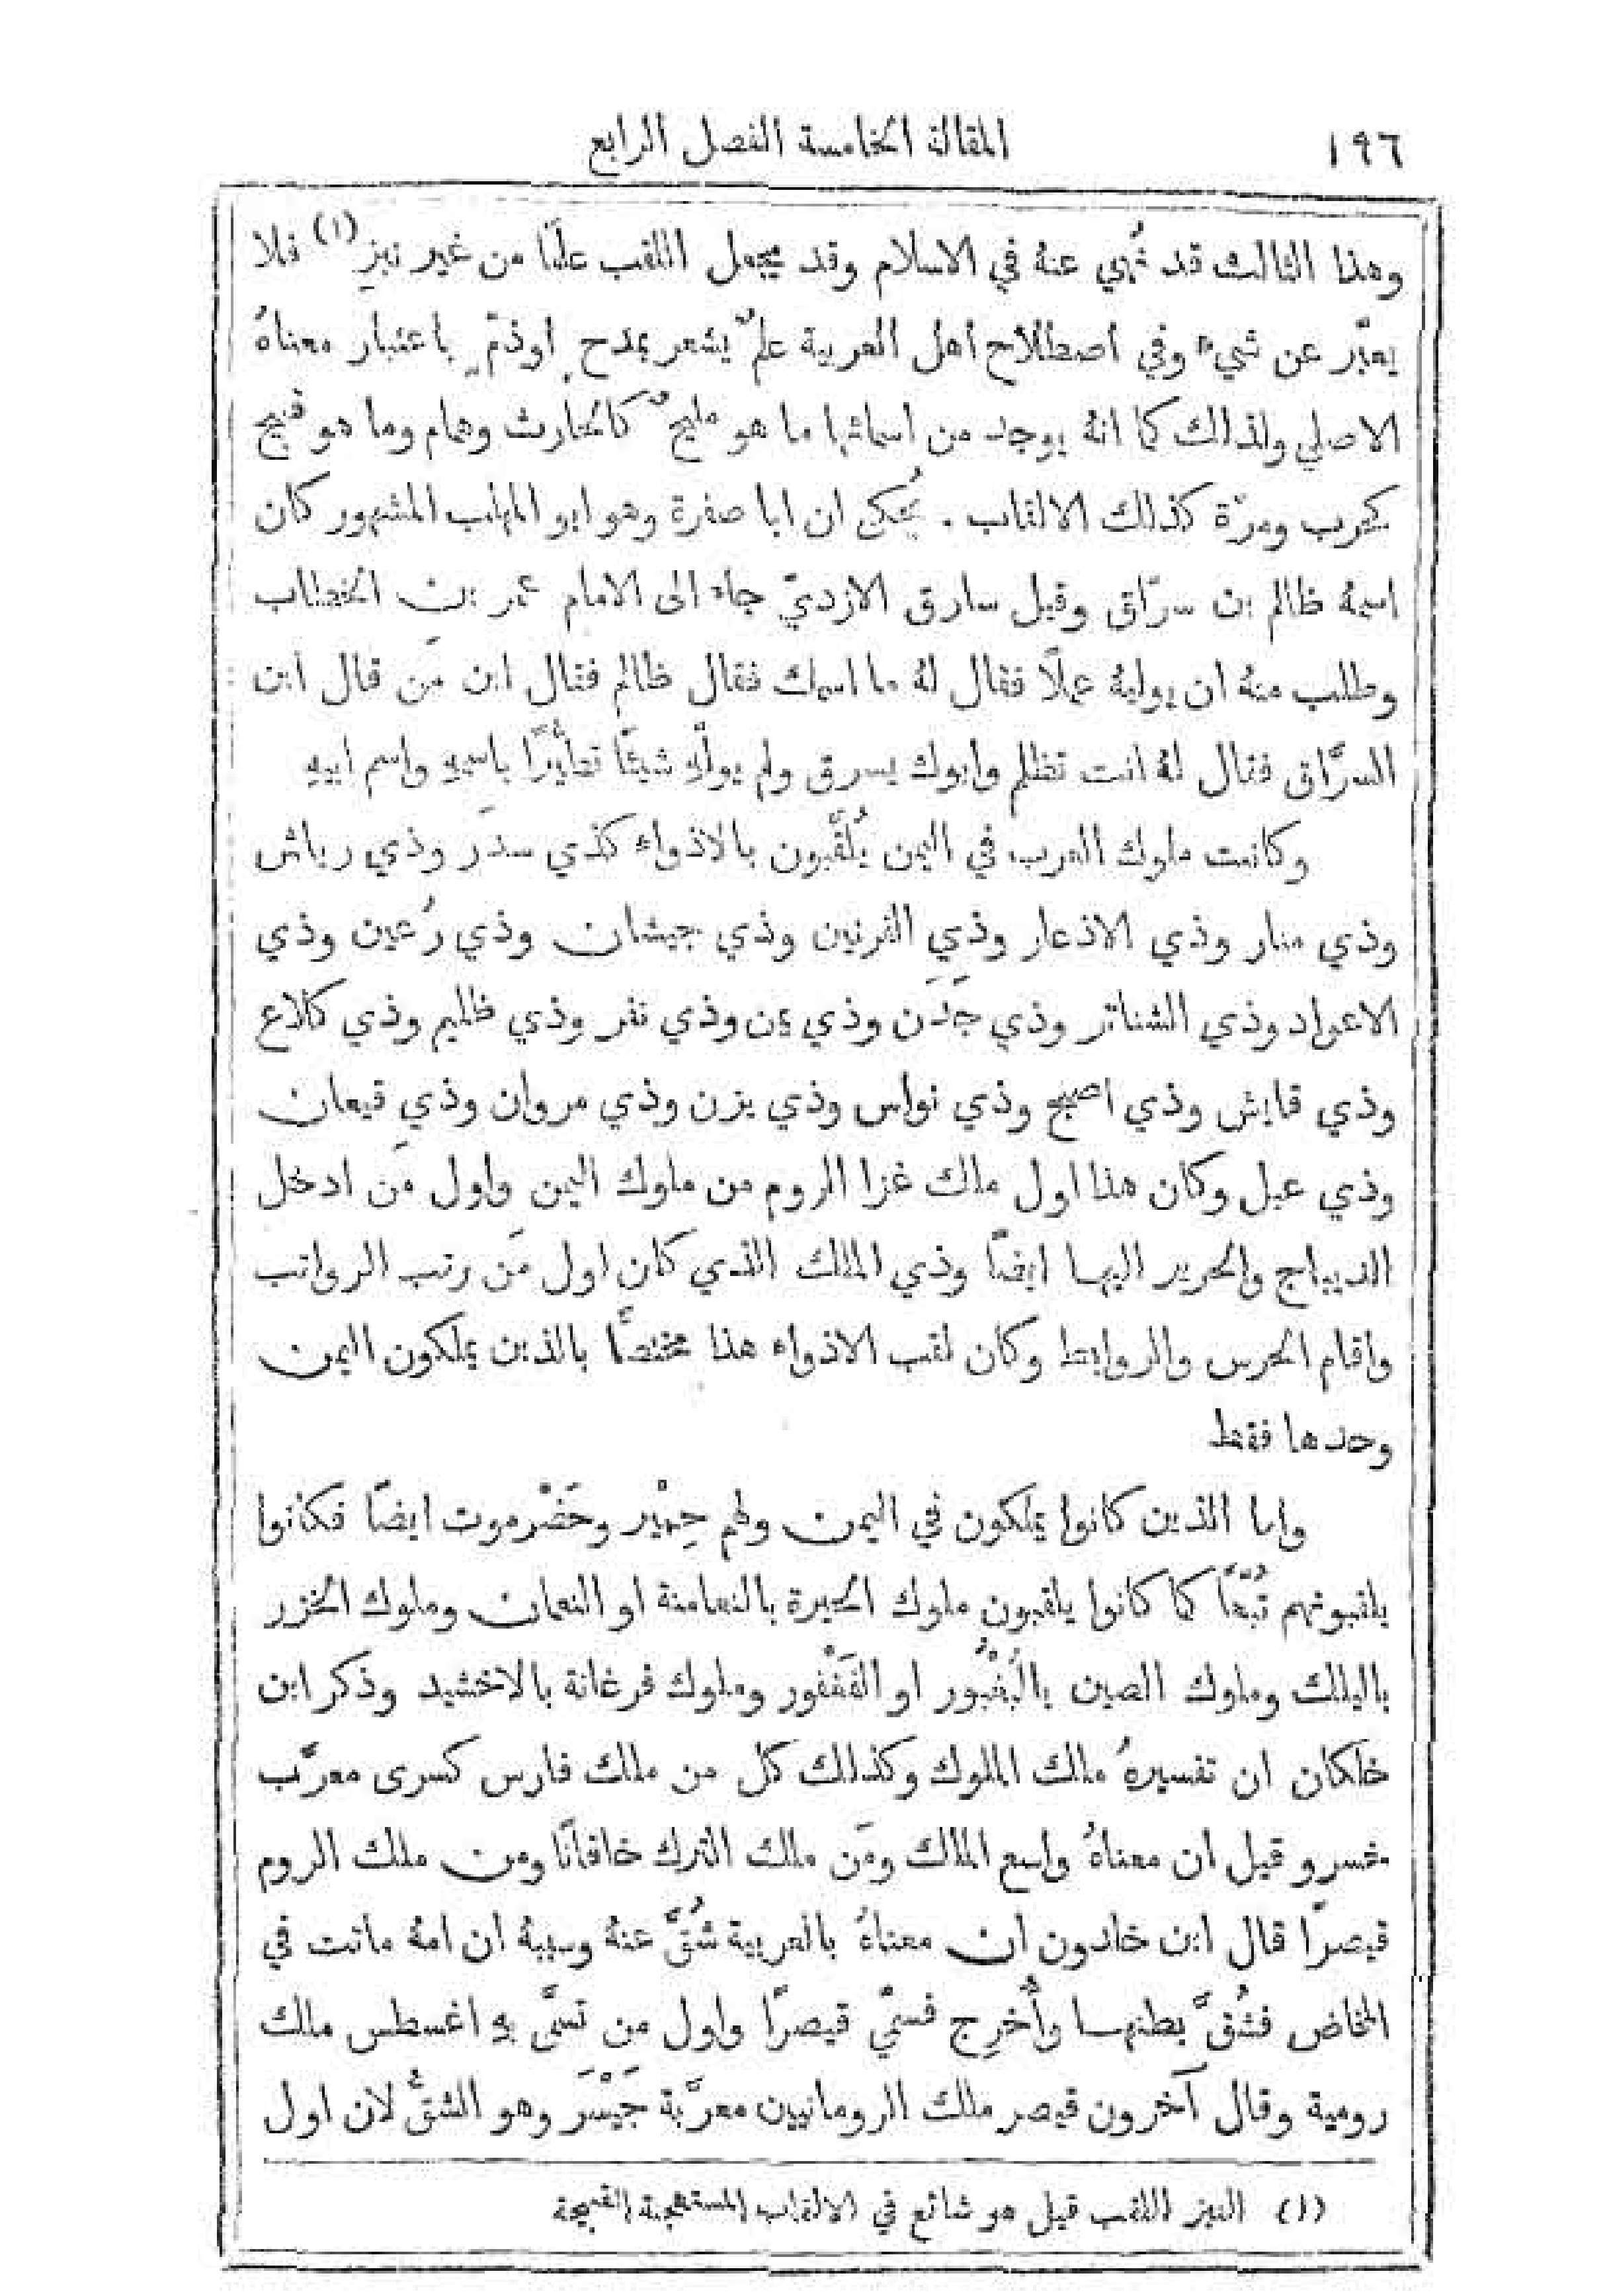 ١٩٦
المقالة الخامسة الفصل الرابع
وهذا الثالث قد نُهي عنهُ في الاسلام وقد يجعل اللقب علمًا من غير نبز (١) فلا
يعبَّر عن شيء وفي اصطلاح اهل العربية علمٌ يشعر بمدح اوذمّ باعتبار معناهُ
الاصلي ولذلك كما انهُ يوجد من اسمائها ما هو مليحٌ كالحارث وهمام وما هو قبيح
كحرب ومرّة كذلك الالقاب . يُحكى ان ابا صفرة وهو ابو المهلب المشهور كان
اسمهُ ظالم بن سرّاق وقيل سارق الازديّ جاء الى الامام عمر بن الخطاب
وطلب منهُ ان يوليهُ عملًا فقال لهُ ما اسمك فقال ظالم فقال ابن مَن قال ابن
السرَّاق فقال لهُ انت تظلم وابوك يسرق ولم يولّهِ شيئًا تطيُّرًا باسمهِ واسم ابيهِ
وكانت ملوك العرب في اليمن يُلقَّبون بالاذواء كذي سدَر وذي رياش
وذي منار وذي الاذعار وذي القرنين وذي جيشان وذي رُعين وذي
الاعواد وذي الشناتر وذي جَدَن وذي يمن وذي نفر وذي ظليم وذي كلاع
وذي قايش وذي اصبح وذي نواس وذي يزن وذي مروان وذي قيعان
وذي عبل وكان هذا اول ملك غزا الروم من ملوك اليمن واول مَن ادخل
الديباج والحرير اليها ايضًا وذي الملك الذي كان اول مَن رتب الرواتب
واقام الحرس والروابط وكان لقب الاذواء هذا مختصًّا بالذين يملكون اليمن
وحدها فقط
واما الذين كانوا يملكون في اليمن ولهم حِمْيَر وحَضْرموت ايضًا فكانوا
يلقبونهم تُبَّعًا كما كانوا يلقبون ملوك الحيرة بالنعامنة او النعمان وملوك الخزر
باليلك وملوك الصين بالبُغْبُور او الفَغْفور وملوك فرغانة بالاخشيد وذكر ابن
خلكان ان تفسيرهُ ملك الملوك وكذلك كل من ملك فارس كسرى معرَّب
خسرو قيل ان معناهُ واسع الملك ومَن ملك الترك خاقانًا ومن ملك الروم
قيصرًا قال ابن خلدون ان معناهُ بالعربية شُقَّ عنهُ وسببهُ ان امهُ ماتت في
المخاض فشُقَّ بطنها وأُخرِج فسمّي قيصرًا واول من تسمَّى بهِ اغسطس ملك
رومية وقال آخرون قيصر ملك الرومانيين معرَّبة جَيْسَر وهو الشقُّ لان اول
(١) النبز اللقب قيل هو شائع في الالقاب المستهجنة القبيحة